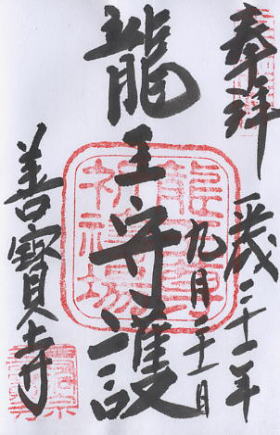 奉拝
平成二十一年
九月二十一日
龍王守護
善寳寺